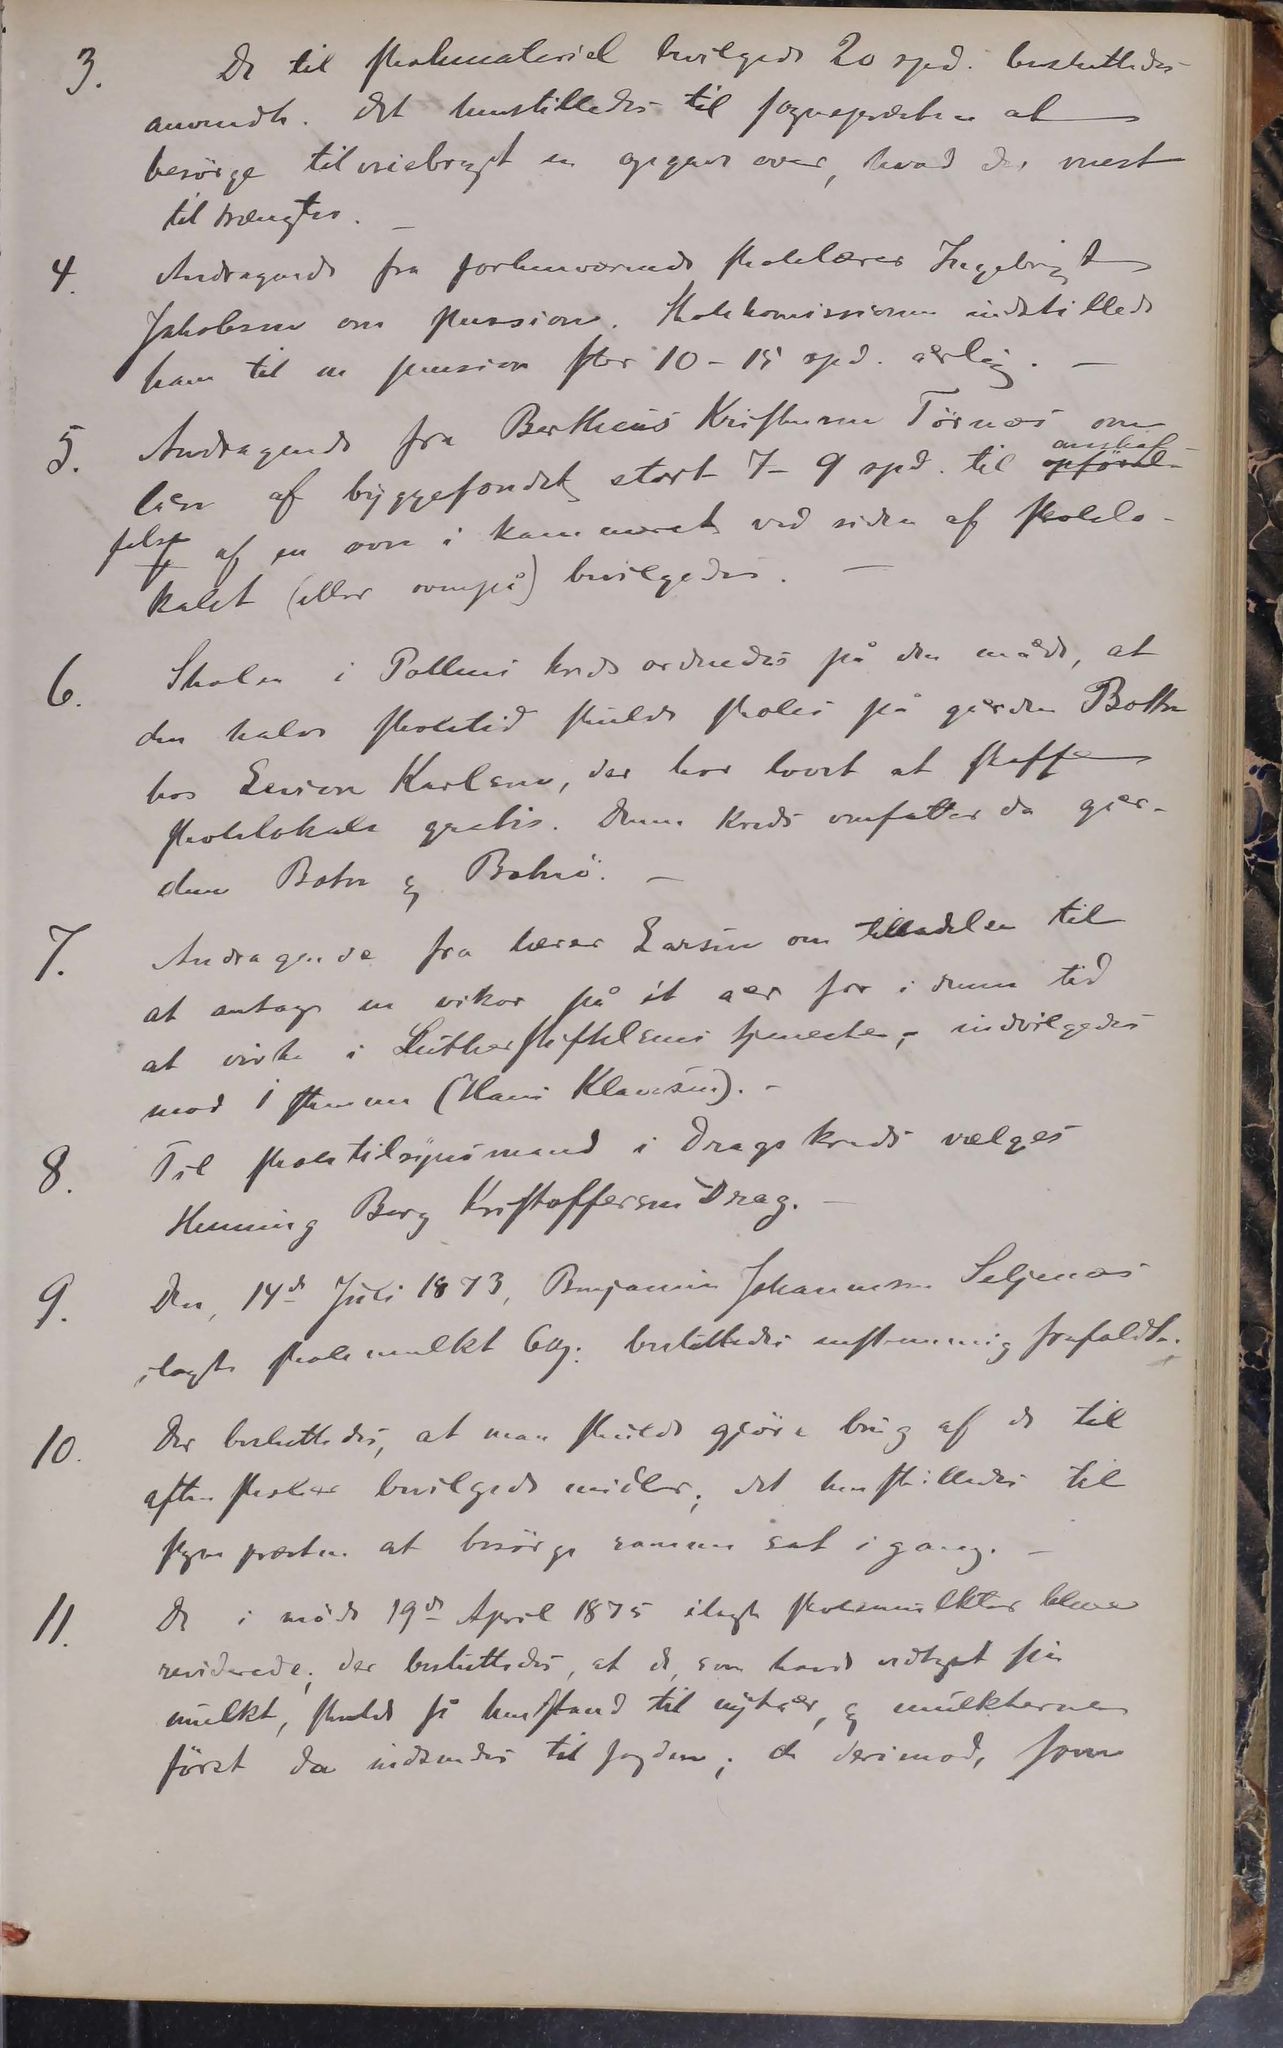 3. De til skolematerial bevilgede 20 spd. besluttedes
anvendte. Det henstilledes til sognepresten at
besørge tilveiebragt en opgave over, hvad der mest
tiltrængtes. —
4. Andragende fra forhenværende skolelærer Ingebrigt
Jakobsen om pension. Skolekomissionen indstillede
ham til en pension stor 10 - 15 spd. aarlig. —
5. Andragende fra Bertheus Kristensen Törnæs om
laan af byggefondet stort 7 - 9 spd. til opförel- anskaf-
felse af en ovn i kammeret ved siden af skolelo-
kalet (eller ovnpå) bevilgedes. —
6. Skolen i Pollens kreds ordnedes på den måde, at
den halve skoletid skulde skoles på gården Botn
hos Karlsen, der har lovet at skaffe
skolelokale gratis. Denne kreds omfatter da går-
dene Botn og Botnö. —
7. Andragende fra lærer Larsen om tilladelse til
at antage en vikar på et aar for i denne tid
at virke i Lutherstiftelsens tjeneste, - indvilgedes
mod 1 stemme (Hans Klausen). -
8. Til skoletilsynsmand i Drags kreds vælges
Henning Berg Kristoffersen Drag. —
9. Den, 14de Juli 1873, Benjamin Johannesen Seljenæs
ilagte skolemulkt 60 besluttedes enstemmig frafaldt.
10. Der besluttedes, at man skulde gjöre brug af de til
aftenskoler bevilgede midler; det henstilledes til
sognepræsten at besörge samme sat i gang. —
11. De i möde 19de April 1875 ilagte skolemulkter bleve
reviderede; der besluttedes, at de, som havde vedtaget sin
mulkt, skulde få henstand til nytaar, og mulkterne
först da indsendes til fogden; de derimod, som